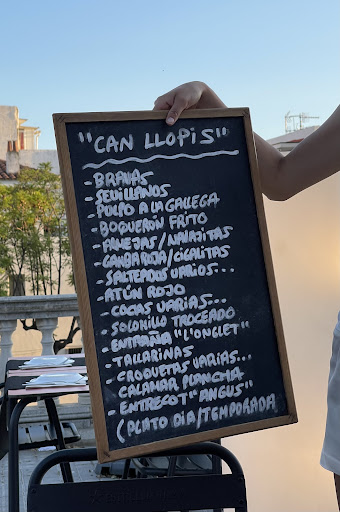 "CAN LLOPIS"
- BRAVAS
- SEVILLANOS
- PULPO A LA GALLEGA
- BOQUERÓN FRITO
- ALMEJAS/NAVAJITAS
- GAMBA ROJA/CIGALITAS
- SALTEADOS VARIOS...
- ATÚN ROJO
- COCAS VARIAS...
- SOLOMILLO TROCEADO
- ENTRAÑA "L'ONGLET"
- TALLARINAS
- CROQUETAS VARIAS...
- CALAMAR PLANCHA
- ENTRECOT "ANGUS"
(PLATO DÍA/TEMPORADA)